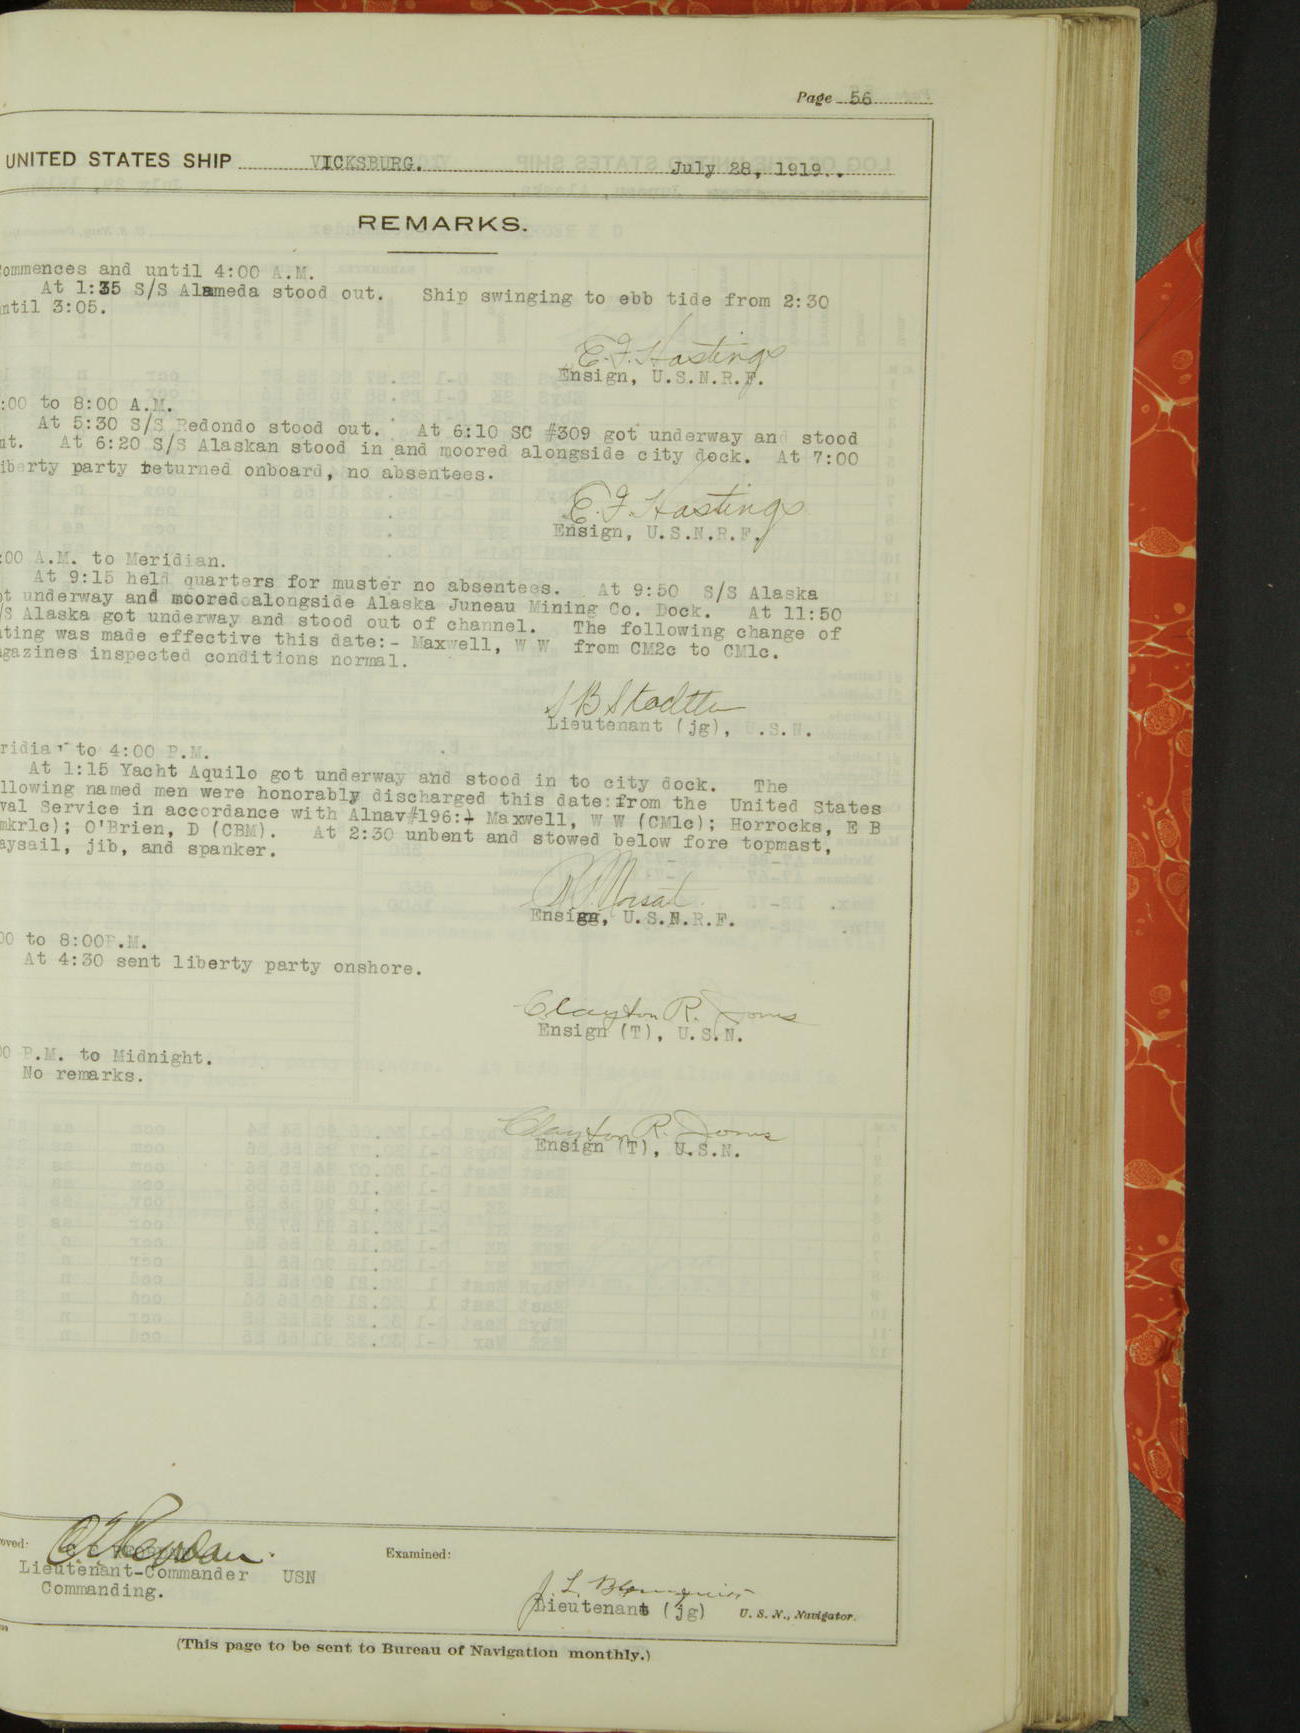 Page 56
UNITED STATES SHIP VICKSBURG. July 28, 1919..
REMARKS.
ommences and until 4:00 A.M.
At 1:35 S/S Alameda stood out. Ship swinging to ebb tide from 2:30
ntil 3:05.
E. F. Hastings
Ensign, U.S.N.R.F.
:00 to 8:00 A.M.
At 5:30 S/S Redondo stood out. At 6:10 SC #309 got underway and stood
ut. At 6:20 S/S Alaskan stood in and moored alongside city dock. At 7:00
iberty party returned onboard, no absentees.
E. F. Hastings
Ensign, U.S.N.R.F.
:00 A.M. to Meridian.
At 9:15 held quarters for muster no absentees. At 9:50 S/S Alaska
ot underway and moored alongside Alaska Juneau Mining Co. Dock. At 11:50
/S Alaska got underway and stood out of channel. The following change of
ating was made effective this date:- Maxwell, W W from CM2c to CM1c.
agazines inspected conditions normal.
Lieutenant (jg), U.S.N.
ridian to 4:00 P.M.
At 1:15 Yacht Aquilo got underway and stood in to city dock. The
llowing named men were honorably discharged this date from the United States
val Service in accordance with Alnav#196:- Maxwell, W W (CM1c); Horrocks, E B
mkr1c); O'Brien, D (CBM). At 2:30 unbent and stowed below fore topmast,
aysail, jib, and spanker.
Ensign, U.S.N.R.F.
00 to 8:00P.M.
At 4:30 sent liberty party onshore.
Clayton R. Jones
Ensign (T), U.S.N.
00 P.M. to Midnight.
No remarks.
Clayton R. Jones
Ensign (T), U.S.N.
oved:
Lieutenant-Commander USN
Commanding.
Examined:
Lieutenant (jg) U. S. N., Navigator.
(This page to be sent to Bureau of Navigation monthly.)